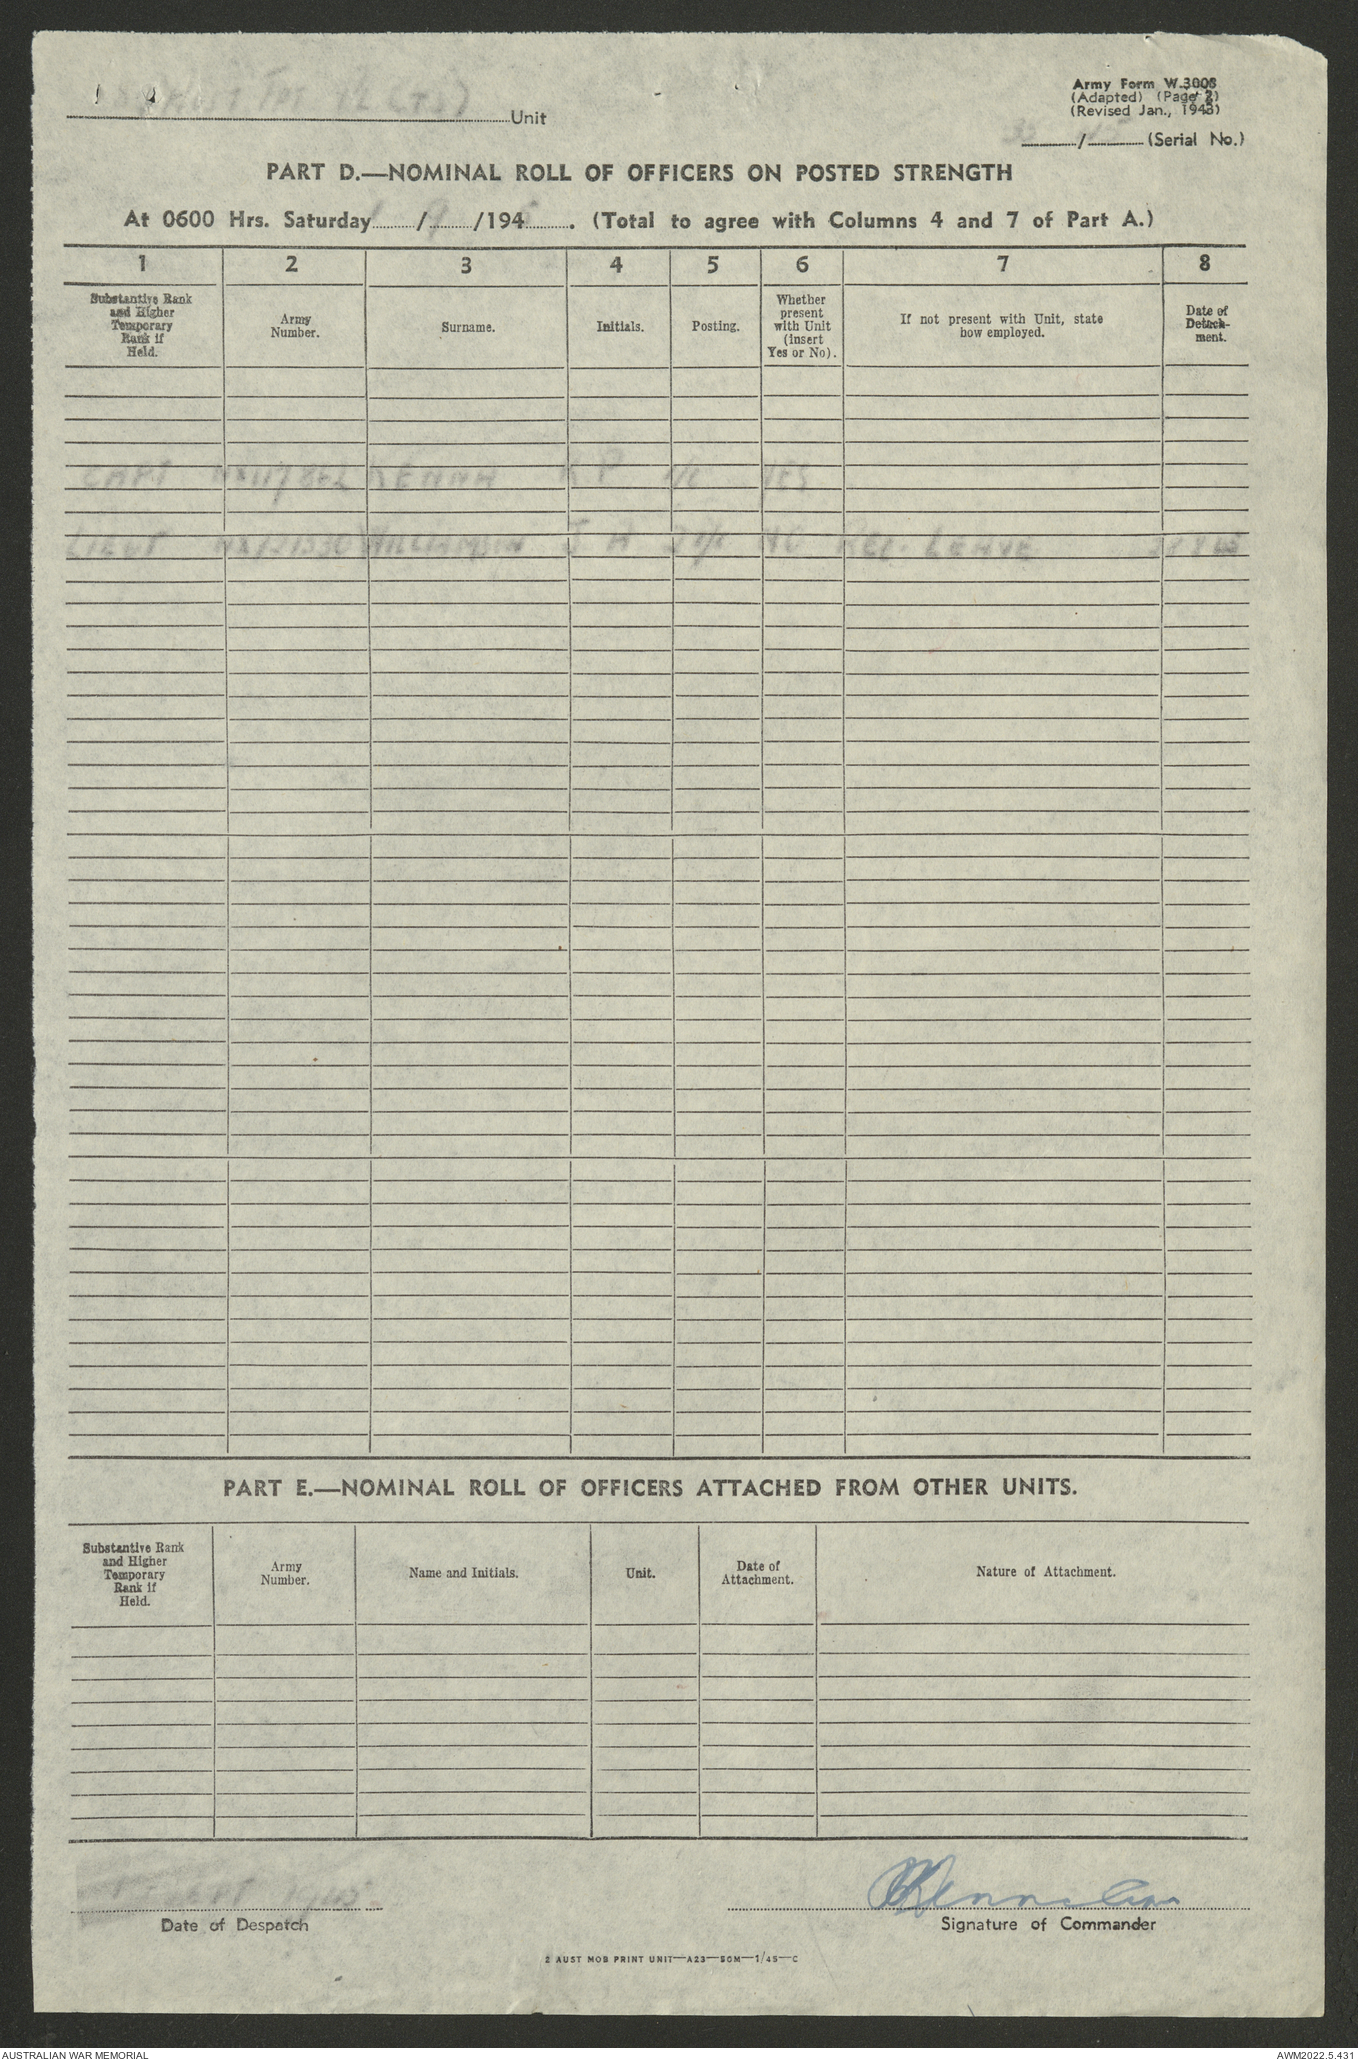 Army Form W.3008
(Adapted) (Page 2)
(Revised Jan., 1943)
Unit
/ (Serial No.)
PART D.—NOMINAL ROLL OF OFFICERS ON POSTED STRENGTH
At 0600 Hrs. Saturday 1 / 9 /1945. (Total to agree with Columns 4 and 7 of Part A.)
1 2 3 4 5 6 7 8
Substantive Rank and Higher Temporary Rank if Held.
Army Number.
Surname.
Initials.
Posting.
Whether present with Unit (insert Yes or No).
If not present with Unit, state how employed.
Date of Detach-ment.
CAPT KENNA K P YES
LIEUT WILLIAMSON J A NO REC. LEAVE
PART E.—NOMINAL ROLL OF OFFICERS ATTACHED FROM OTHER UNITS.
Substantive Rank and Higher Temporary Rank if Held.
Army Number.
Name and Initials.
Unit.
Date of Attachment.
Nature of Attachment.
1 SEPT 1945
Date of Despatch
Signature of Commander
2 AUST MOB PRINT UNIT—A23—50M—1/45—C
AUSTRALIAN WAR MEMORIAL
AWM2022.5.431